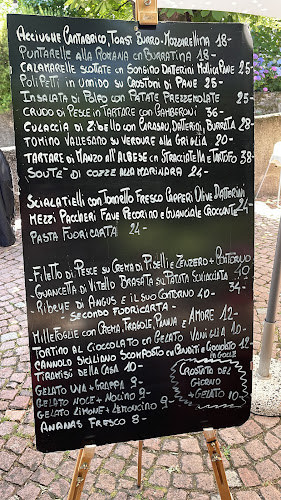 Acciughe Cantabrico, Toast Burro e Mozzarellina 18-
Puntarelle alla Romana con Burratina 18-
Calamarelle scottate con Songino Datterini Mollica Pane 25-
Polipetti in umido su Crostoni di Pane 25-
Insalata di Polpo con Patate Prezzemolate 25-
Crudo di Pesce in Tartare con Gamberoni 36-
Culaccia di Zibello con Carasau, Datterini, Burrata 28-
Tomino Vallesano su Verdure alla Griglia 20-
Tartare di Manzo all'Albese con Stracciatella e Tartufo 38-
Soutè di cozze alla marinara 24-
Scialatielli con Tonnetto Fresco Capperi Olive Datterini 24-
Mezzi Paccheri Fave Pecorino e Guanciale Croccante 24-
Pasta Fuoricarta 24-
-Filetto di Pesce su Crema di Piselli e Zenzero + Contorno 40-
-Guancetta di Vitello Brasata su Patata Schiacciata 34-
-Ribeye di Angus e il suo Contorno 40-
-Secondo Fuoricarta-
Millefoglie con Crema, Fragole, Panna e Amore 12-
Tortino al Cioccolato con Gelato Vaniglia 12-
Cannolo Siciliano Scomposto con Canditi e Cioccolato in Gocce 12-
Tiramisu della Casa 10-
Gelato Uva + Grappa 9-
Gelato Noce + Nocino 9-
Gelato Limone + Lemoncino 9-
Ananas Fresco 8-
Crostata del
Giorno
+ Gelato 10